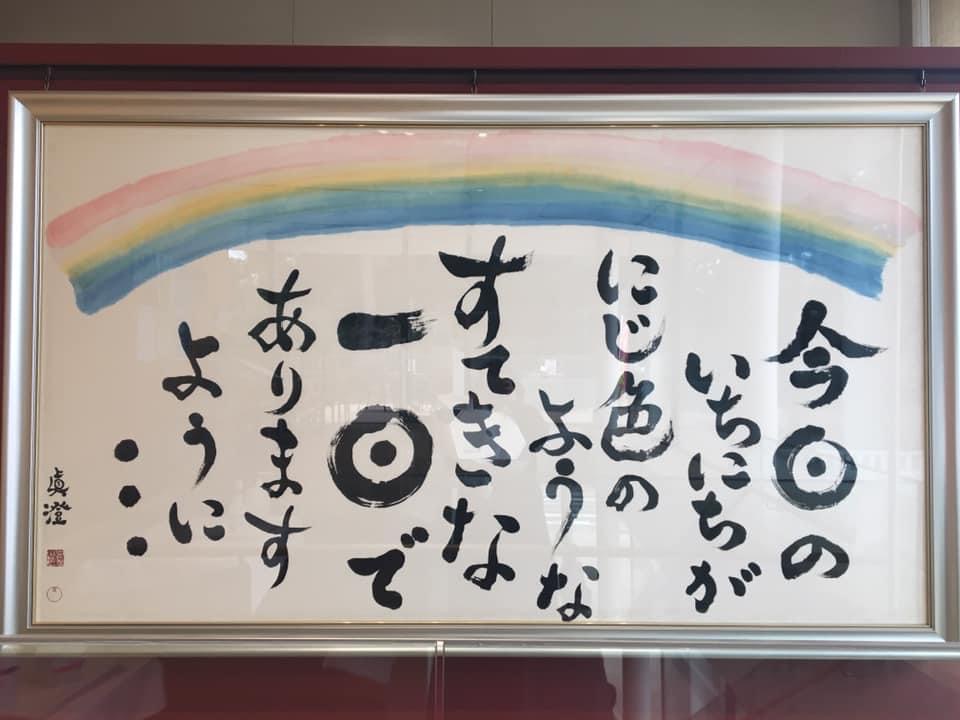 今日の
いちにちが
にじ色の
ような
すてきな
一日で
あります
ように
・・・
眞澄